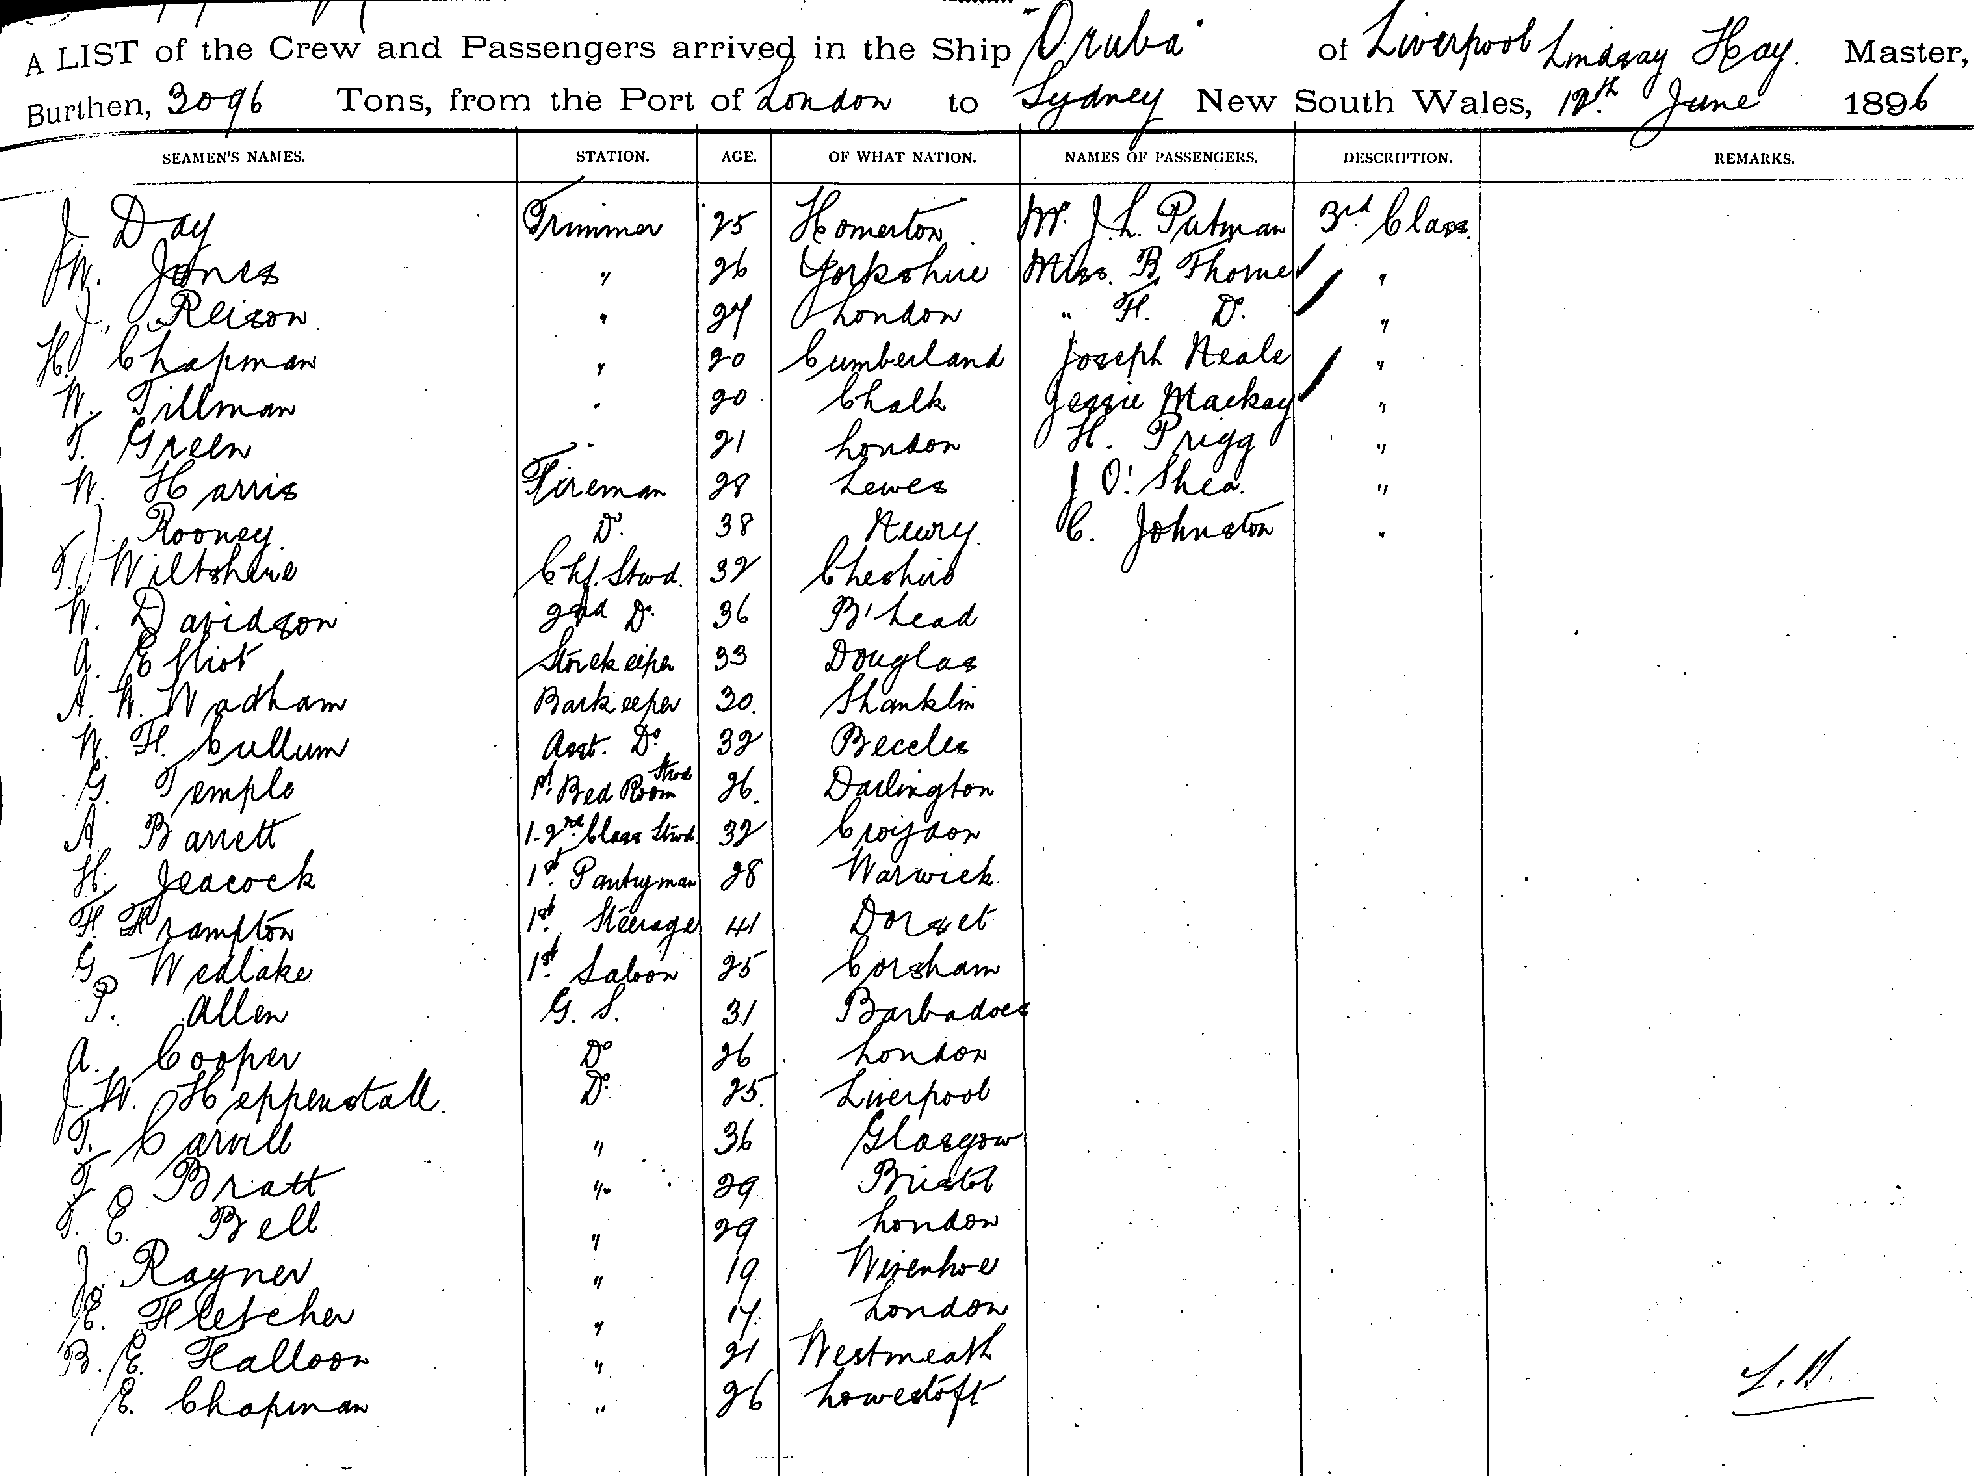 A LIST of the Crew and Passengers arrived in the Ship "Oruba" of Liverpool Lindsay Hay. Master,
Burthen, 3096 Tons, from the Port of London to Sydney New South Wales, 12th June 1896
SEAMEN'S NAMES. STATION. AGE. OF WHAT NATION. NAMES OF PASSENGERS. DESCRIPTION. REMARKS.
J. Day Trimmer 25 Homerton Mr. J. L. Putman 3rd Class.
W. Jones " 26 Yorkshire Miss. B. Thorne "
J. Reison " 27 London " F. Do. "
H. Chapman " 20 Cumberland Joseph Neale "
W. Tillman " 20 Chalk Jessie Mackay "
T. Green " 21 London H. Prigg "
W. Harris Fireman 28 Lewes J O'Shea "
J. Rooney Do. 38 Newry C. Johnston "
T. Wiltshire Chf. Stwd. 32 Cheshire
W. Davidson 2nd Do. 36 B'head
A. Elliot Storekeeper 33 Douglas
A. W. Wadham Barkeeper 30. Shanklin
W. H. Cullum Asst. Do. 32 Beccles
G. Temple 1st. Bed Room Stwd 26. Darlington
A. Barrett 1-2nd Class Stwd. 32 Croydon
H. Jeacock 1st. Pantryman 28 Warwick
F. Frampton 1st. Steerage 41 Dorset
G. Wedlake 1st. Saloon 25 Corsham
P. Allen G. S. 31 Barbadoes
A. Cooper Do 26 London
J. W. Heppenstall. Do. 25. Liverpool
T. Carvill " 36 Glasgow
F. Bratt " 29 Bristol
T. E. Bell " 29 London
J. Rayner " 19 Wivenhoe
E. Fletcher " 17. London
B. E. Falloon " 21 Westmeath
E. Chapman " 26 Lowestoft
L. H.